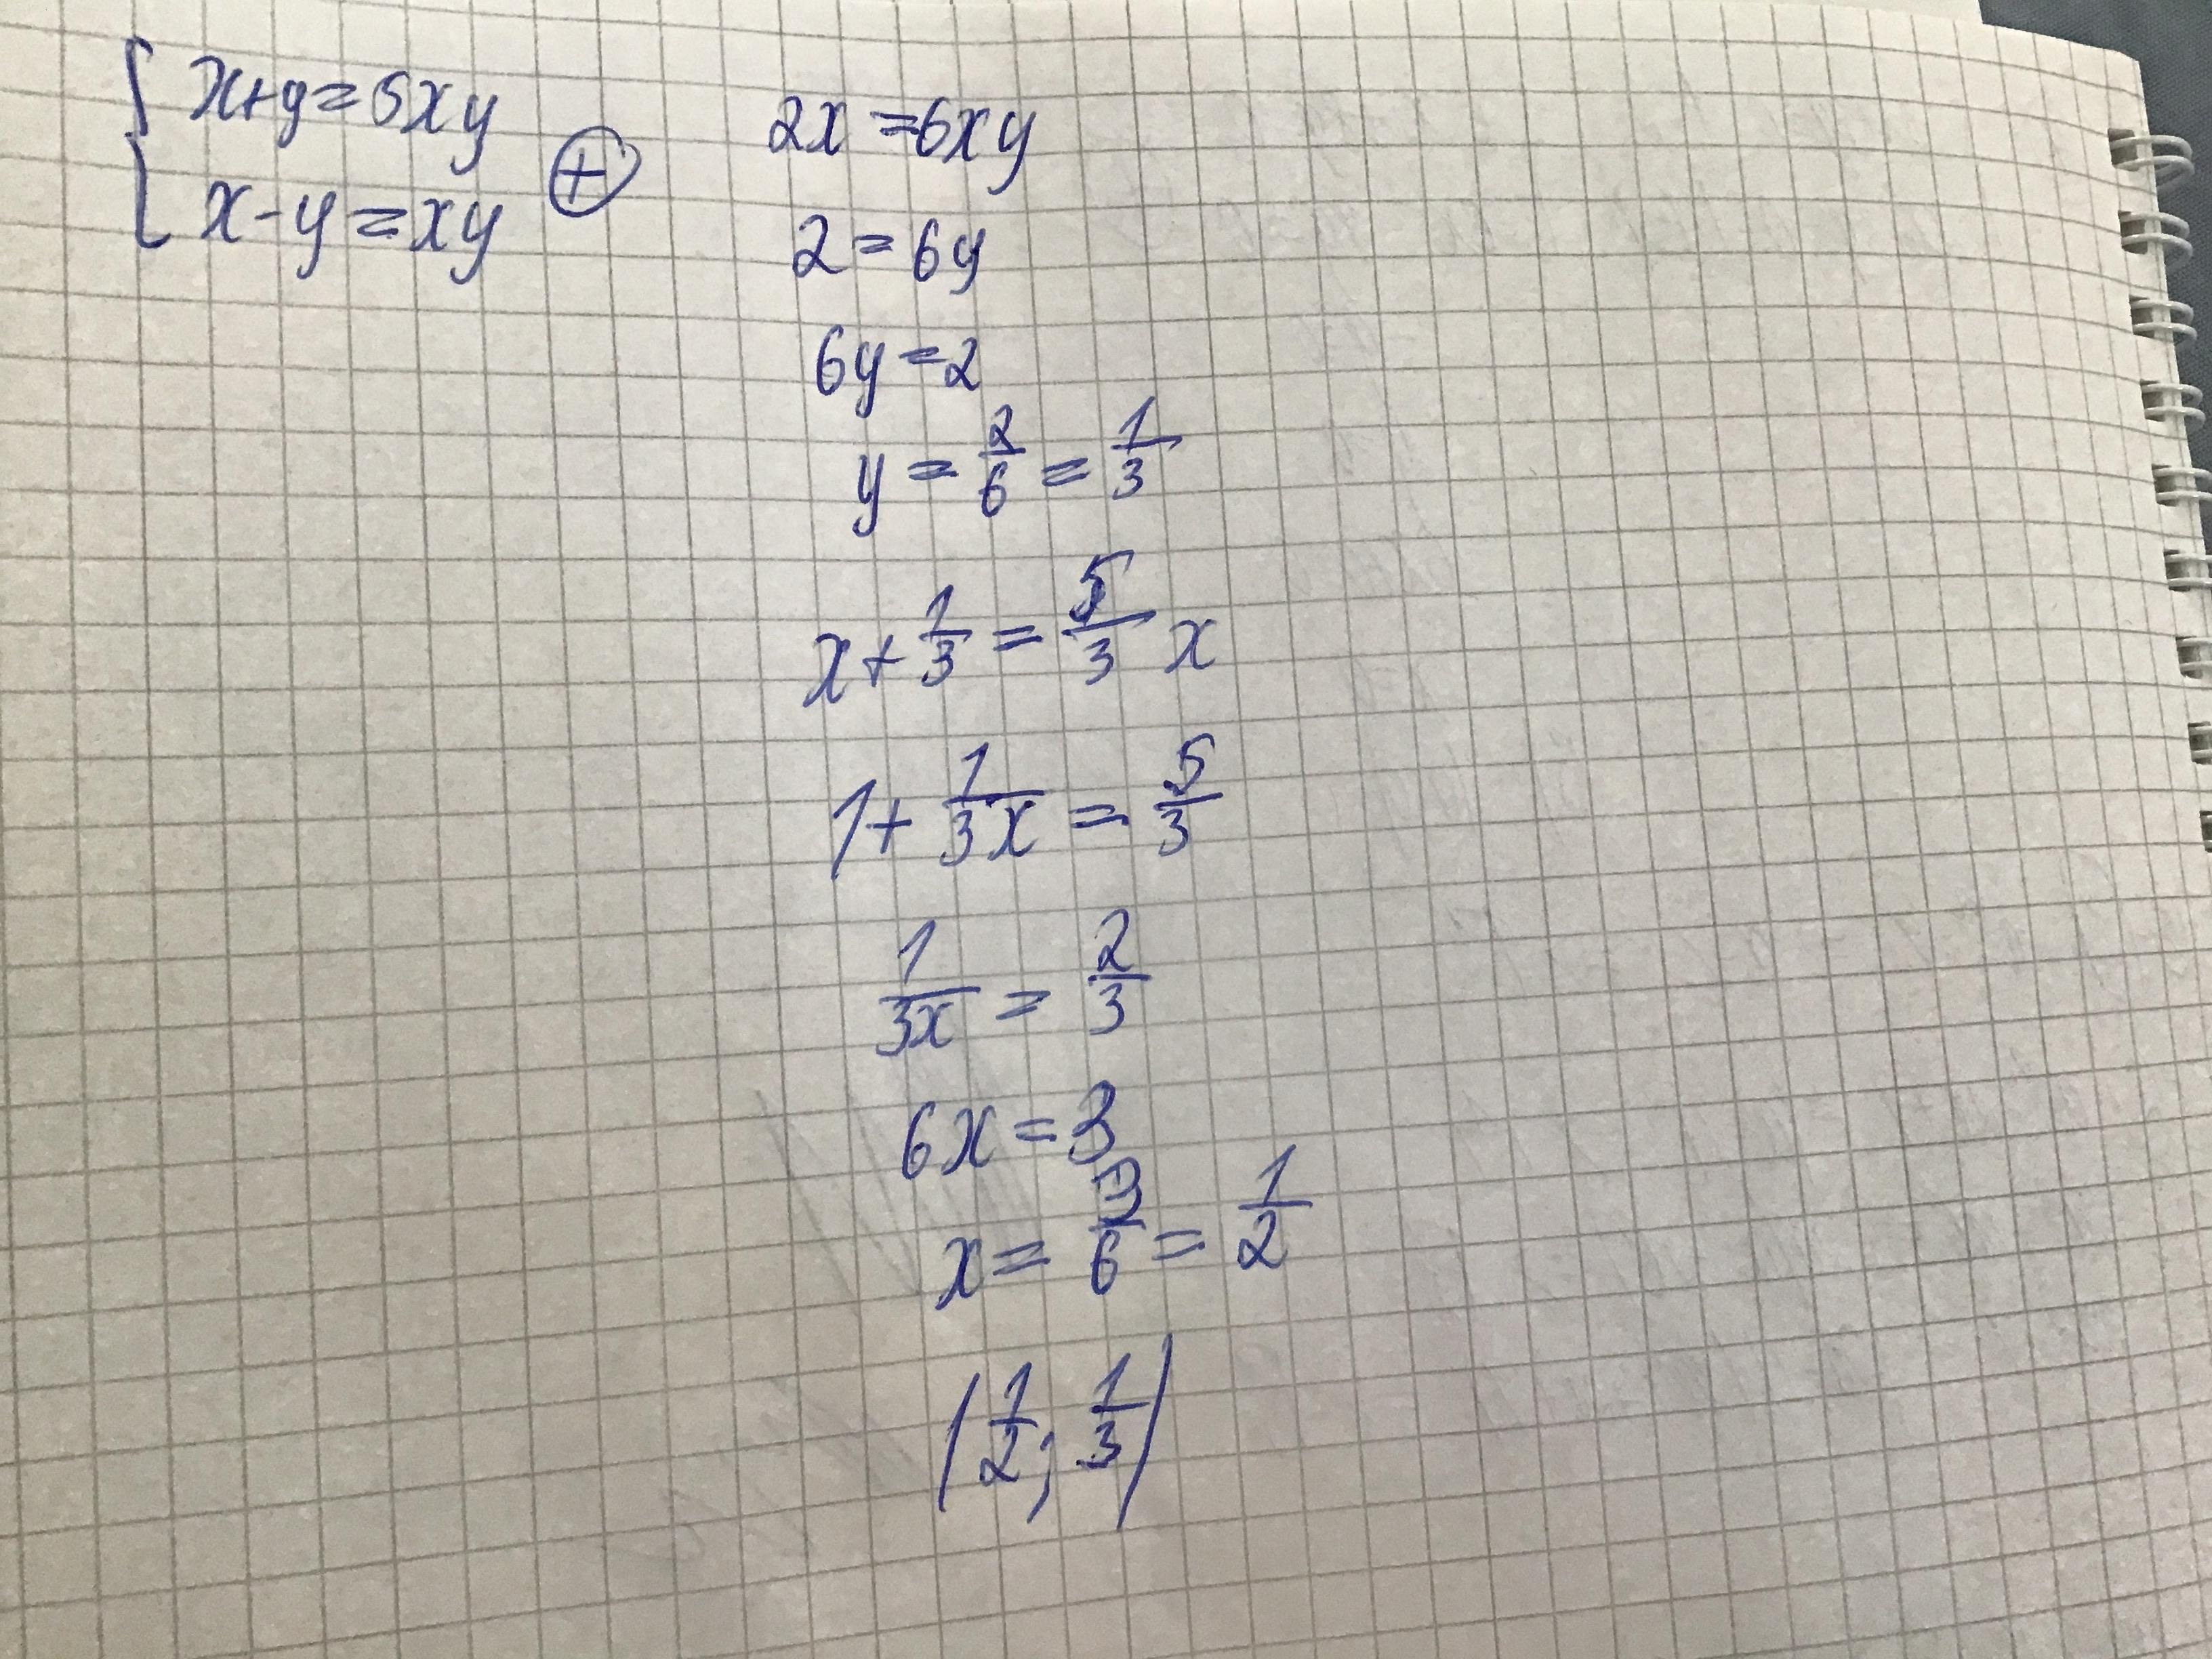 { x+y=5xy
x-y=xy ⊕
2x=6xy
2=6y
6y=2
y=2/6=1/3
x+1/3=5/3 x
1+1/3x=5/3
1/3x=2/3
6x=3
x=3/6=1/2
(1/2; 1/3)